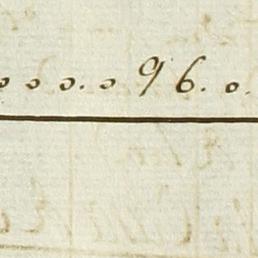 o o o. o 96. o.